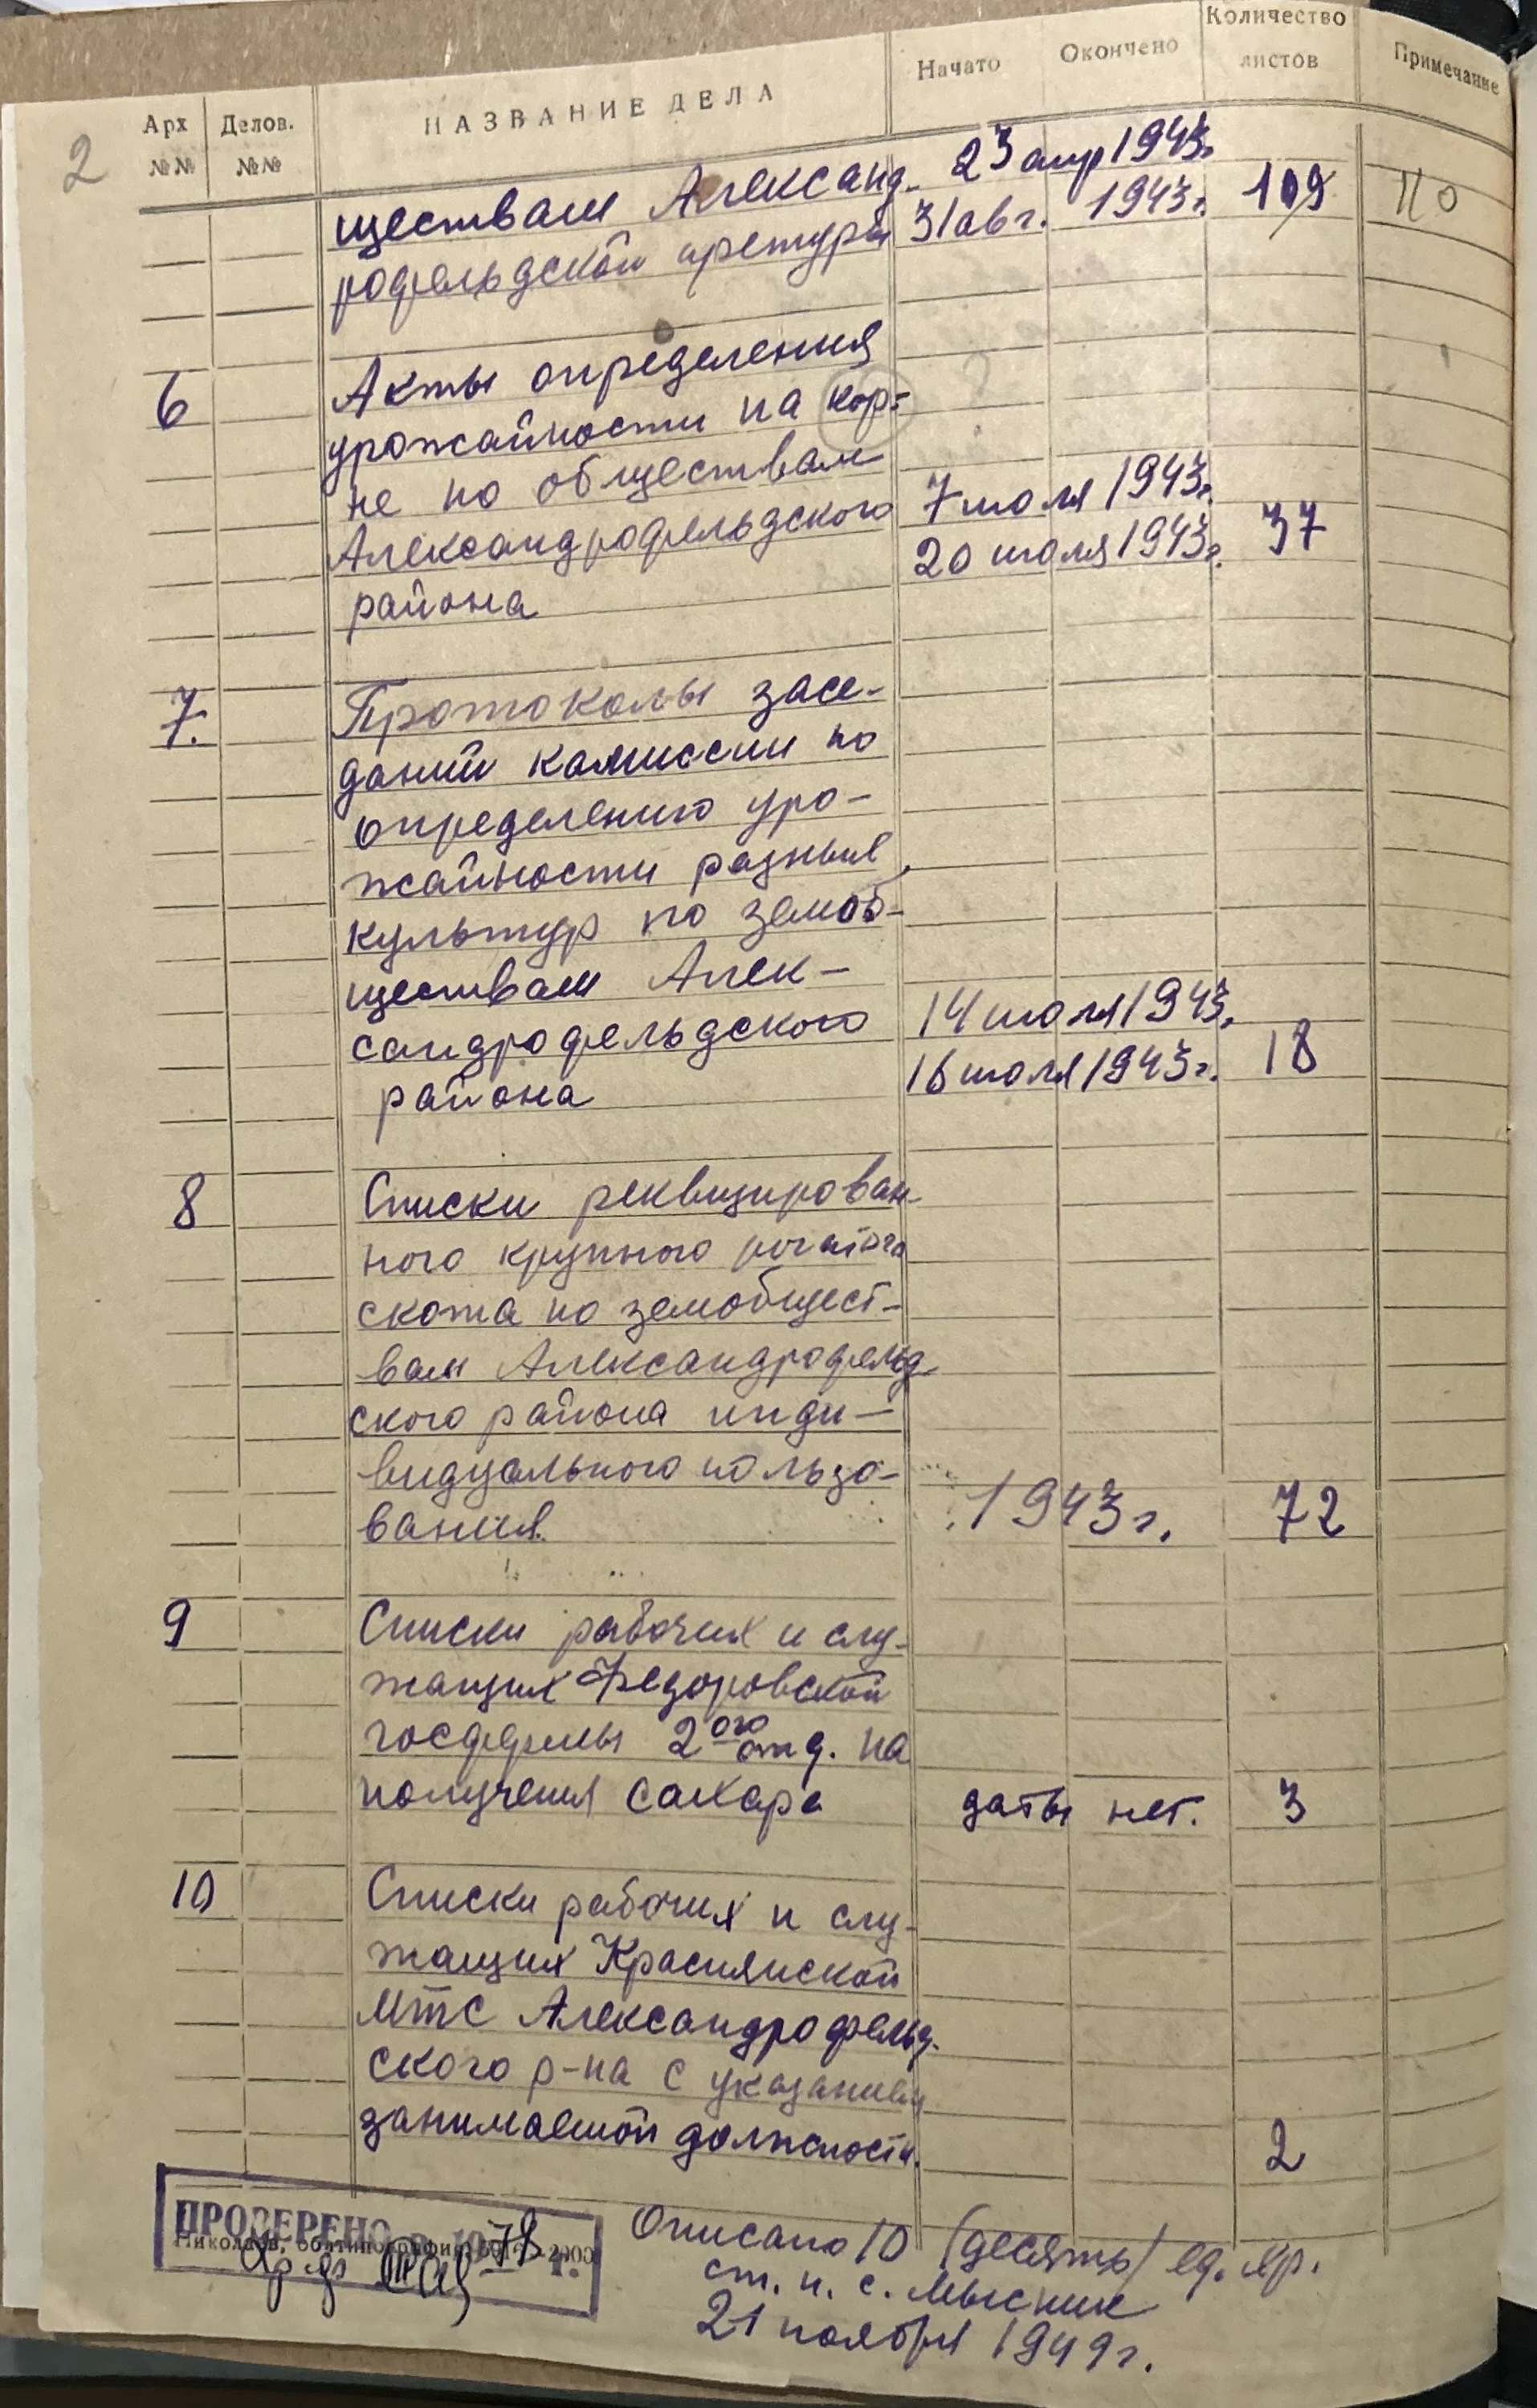 2
Арх №№ Делов. №№ НАЗВАНИЕ ДЕЛА Начато Окончено Количество листов Примечание
ществам Александ- 23 апр 1943г.
рофельдской претуры 31 авг. 1943г. 109 110
6 Акты определения
урожайности на кор-
не по обществам
Александрофельдского 7 июля 1943г.
района 20 июля 1943г. 37
7. Протоколы засе-
даний комиссии по
определению уро-
жайности разных
культур поземоб-
ществам Алек-
сандрофельдского 14 июля 1943г.
района 16 июля 1943г. 18
8 Списки реквизирован
ного крупного рогатого
скота по земобщест-
вам Александрофельд
ского района инди-
видуального пользо-
вания. 1943г. 72
9 Списки рабочих и слу-
жащих Федоровской
госфермы 2ого отд. на
получения сахара даты нет. 3
10 Списки рабочих и слу-
жащих Краснянской
МТС Александрофельд-
ского р-на с указанием
занимаемой должности. 2
ПРОВЕРЕНО 1978 г.
Николаев, облтипография
Описано 10 (десять) ед. хр.
ст. н. с. Мысник
21 ноября 1949г.